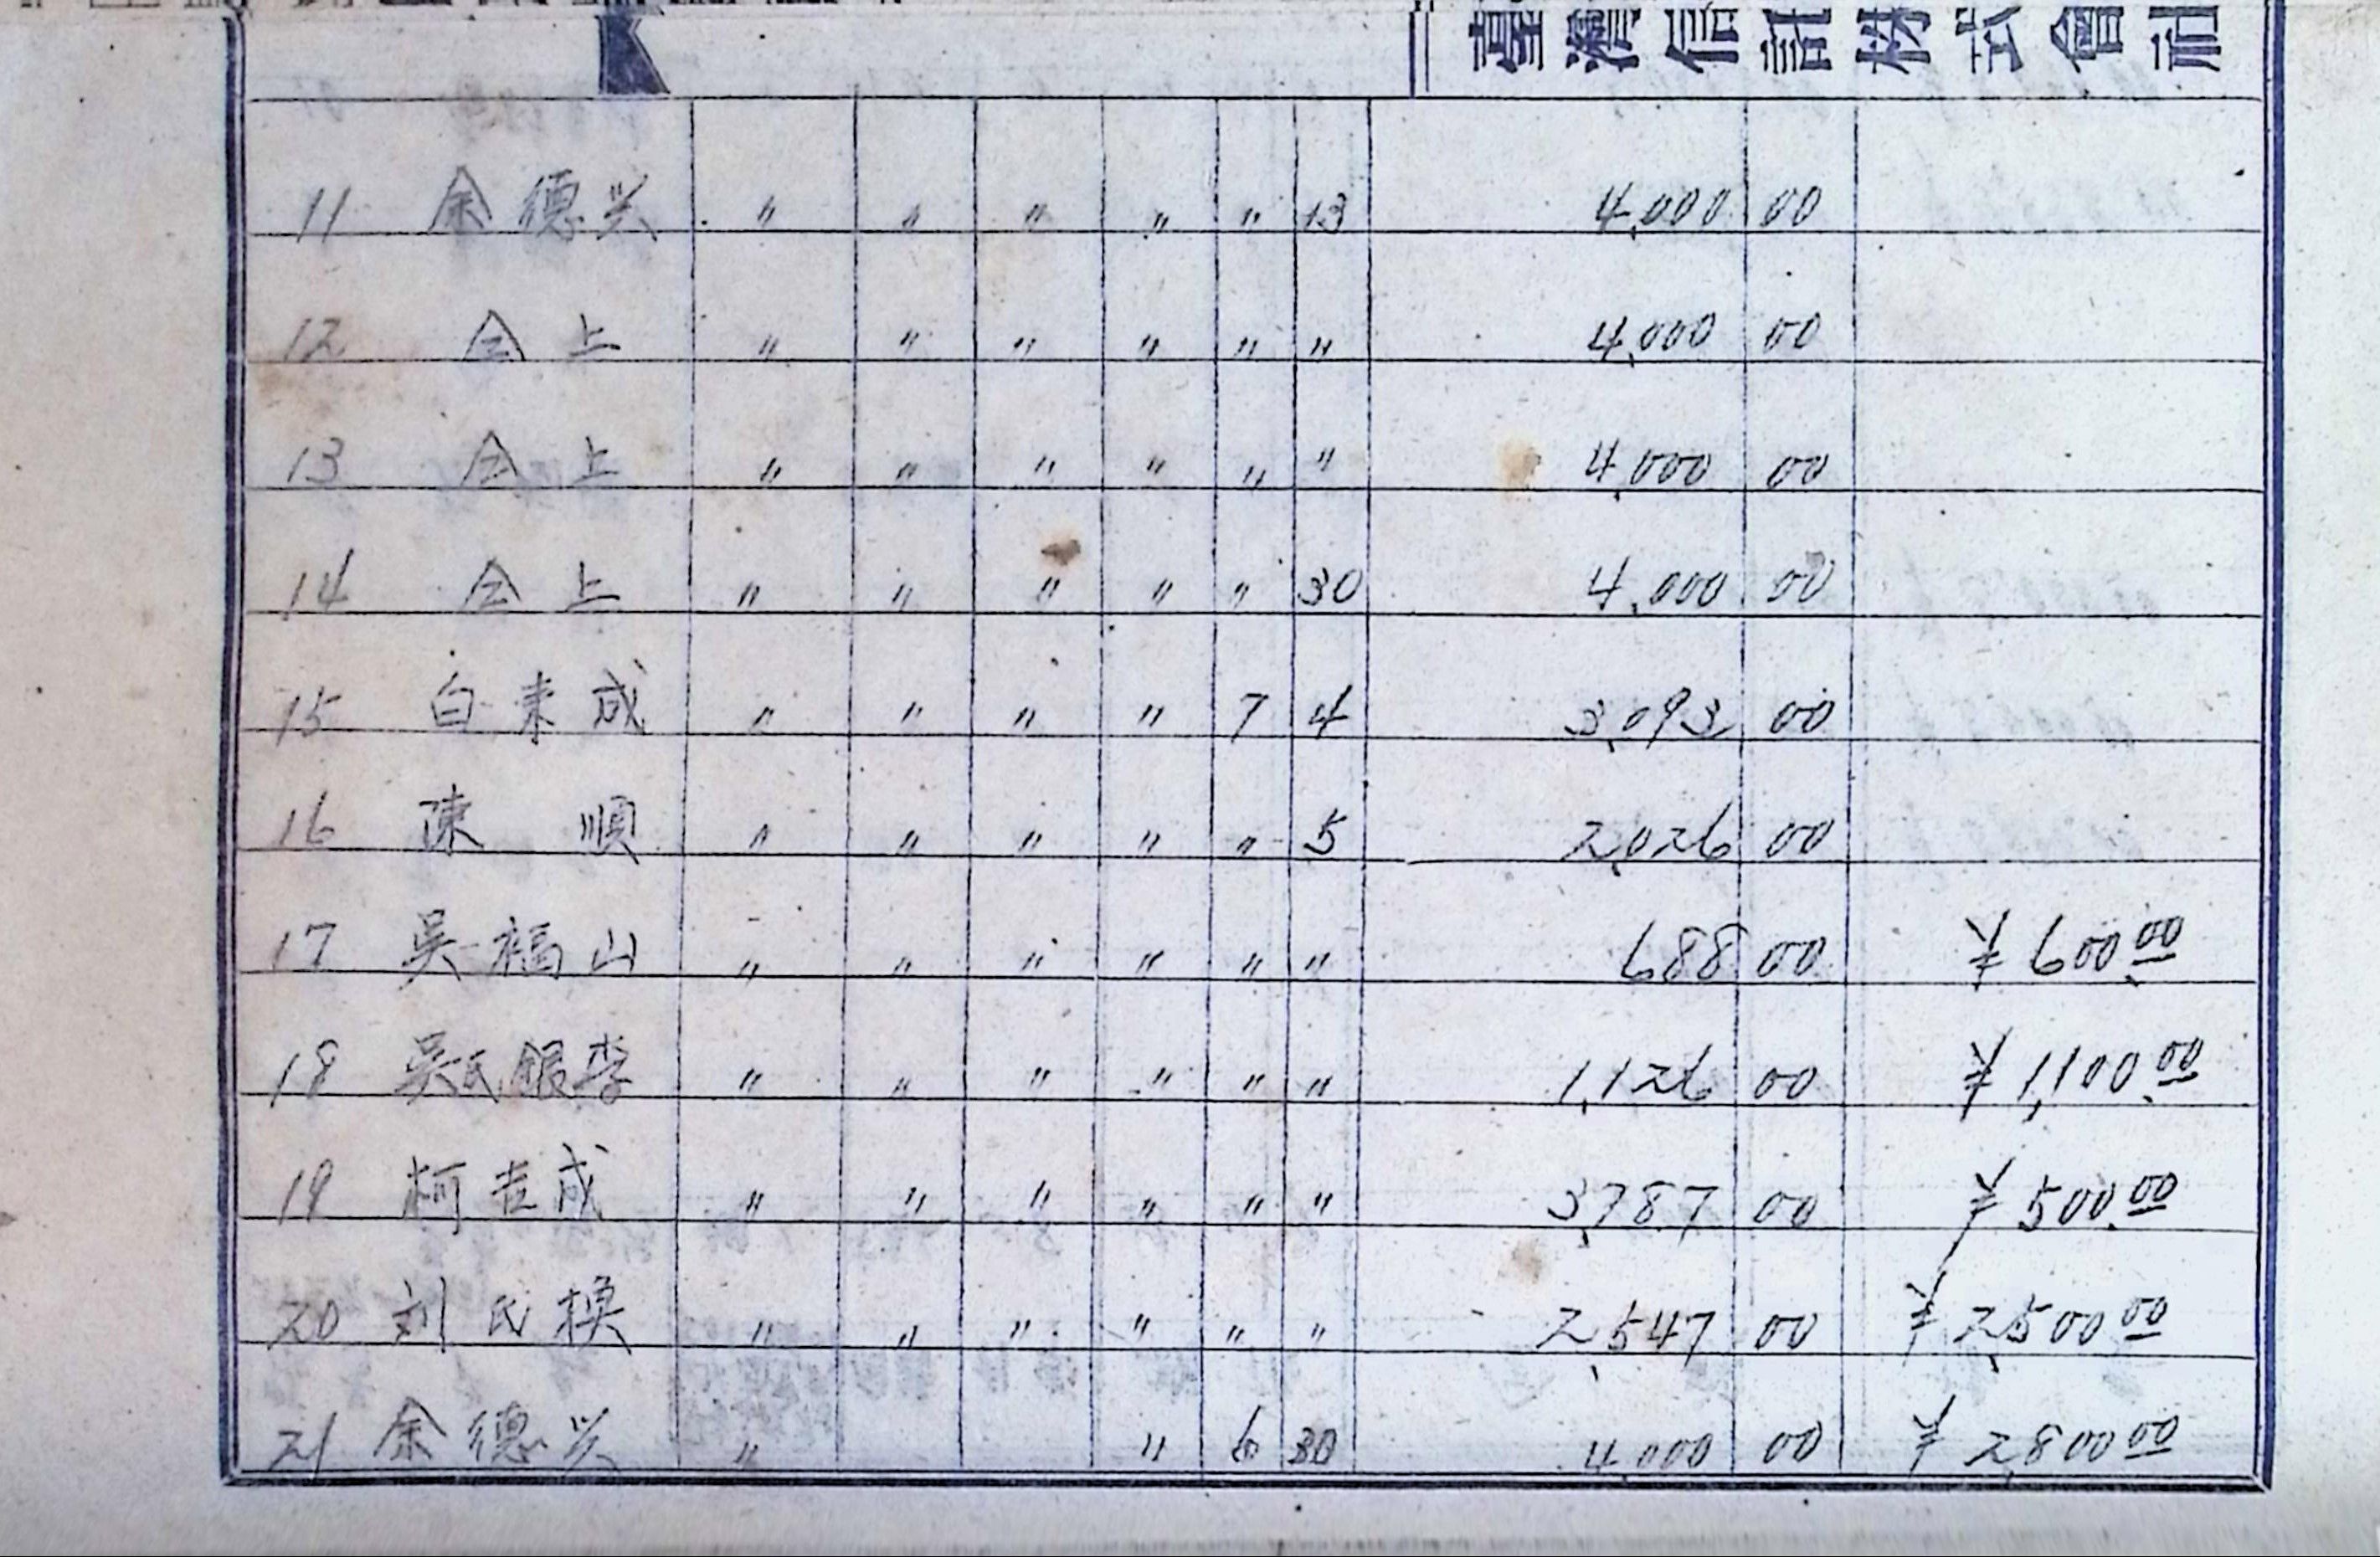 臺灣信託株式會社
11 余德兴 〃 〃 〃 〃 〃 13 4,000 00
12 仝上 〃 〃 〃 〃 〃 〃 4,000 00
13 仝上 〃 〃 〃 〃 〃 〃 4,000 00
14 仝上 〃 〃 〃 〃 〃 30 4,000 00
15 白来成 〃 〃 〃 〃 7 4 3,093 00
16 陳順 〃 〃 〃 〃 〃 5 2,026 00
17 吳福山 〃 〃 〃 〃 〃 〃 688 00 ¥600.00
18 吳氏銀李 〃 〃 〃 〃 〃 〃 1,126 00 ¥1,100.00
19 柯吉成 〃 〃 〃 〃 〃 〃 3,787 00 ¥500.00
20 刘氏換 〃 〃 〃 〃 〃 〃 2,547 00 ¥2,500 00
21 余德兴 〃 〃 6 30 4,000 00 ¥2,800 00